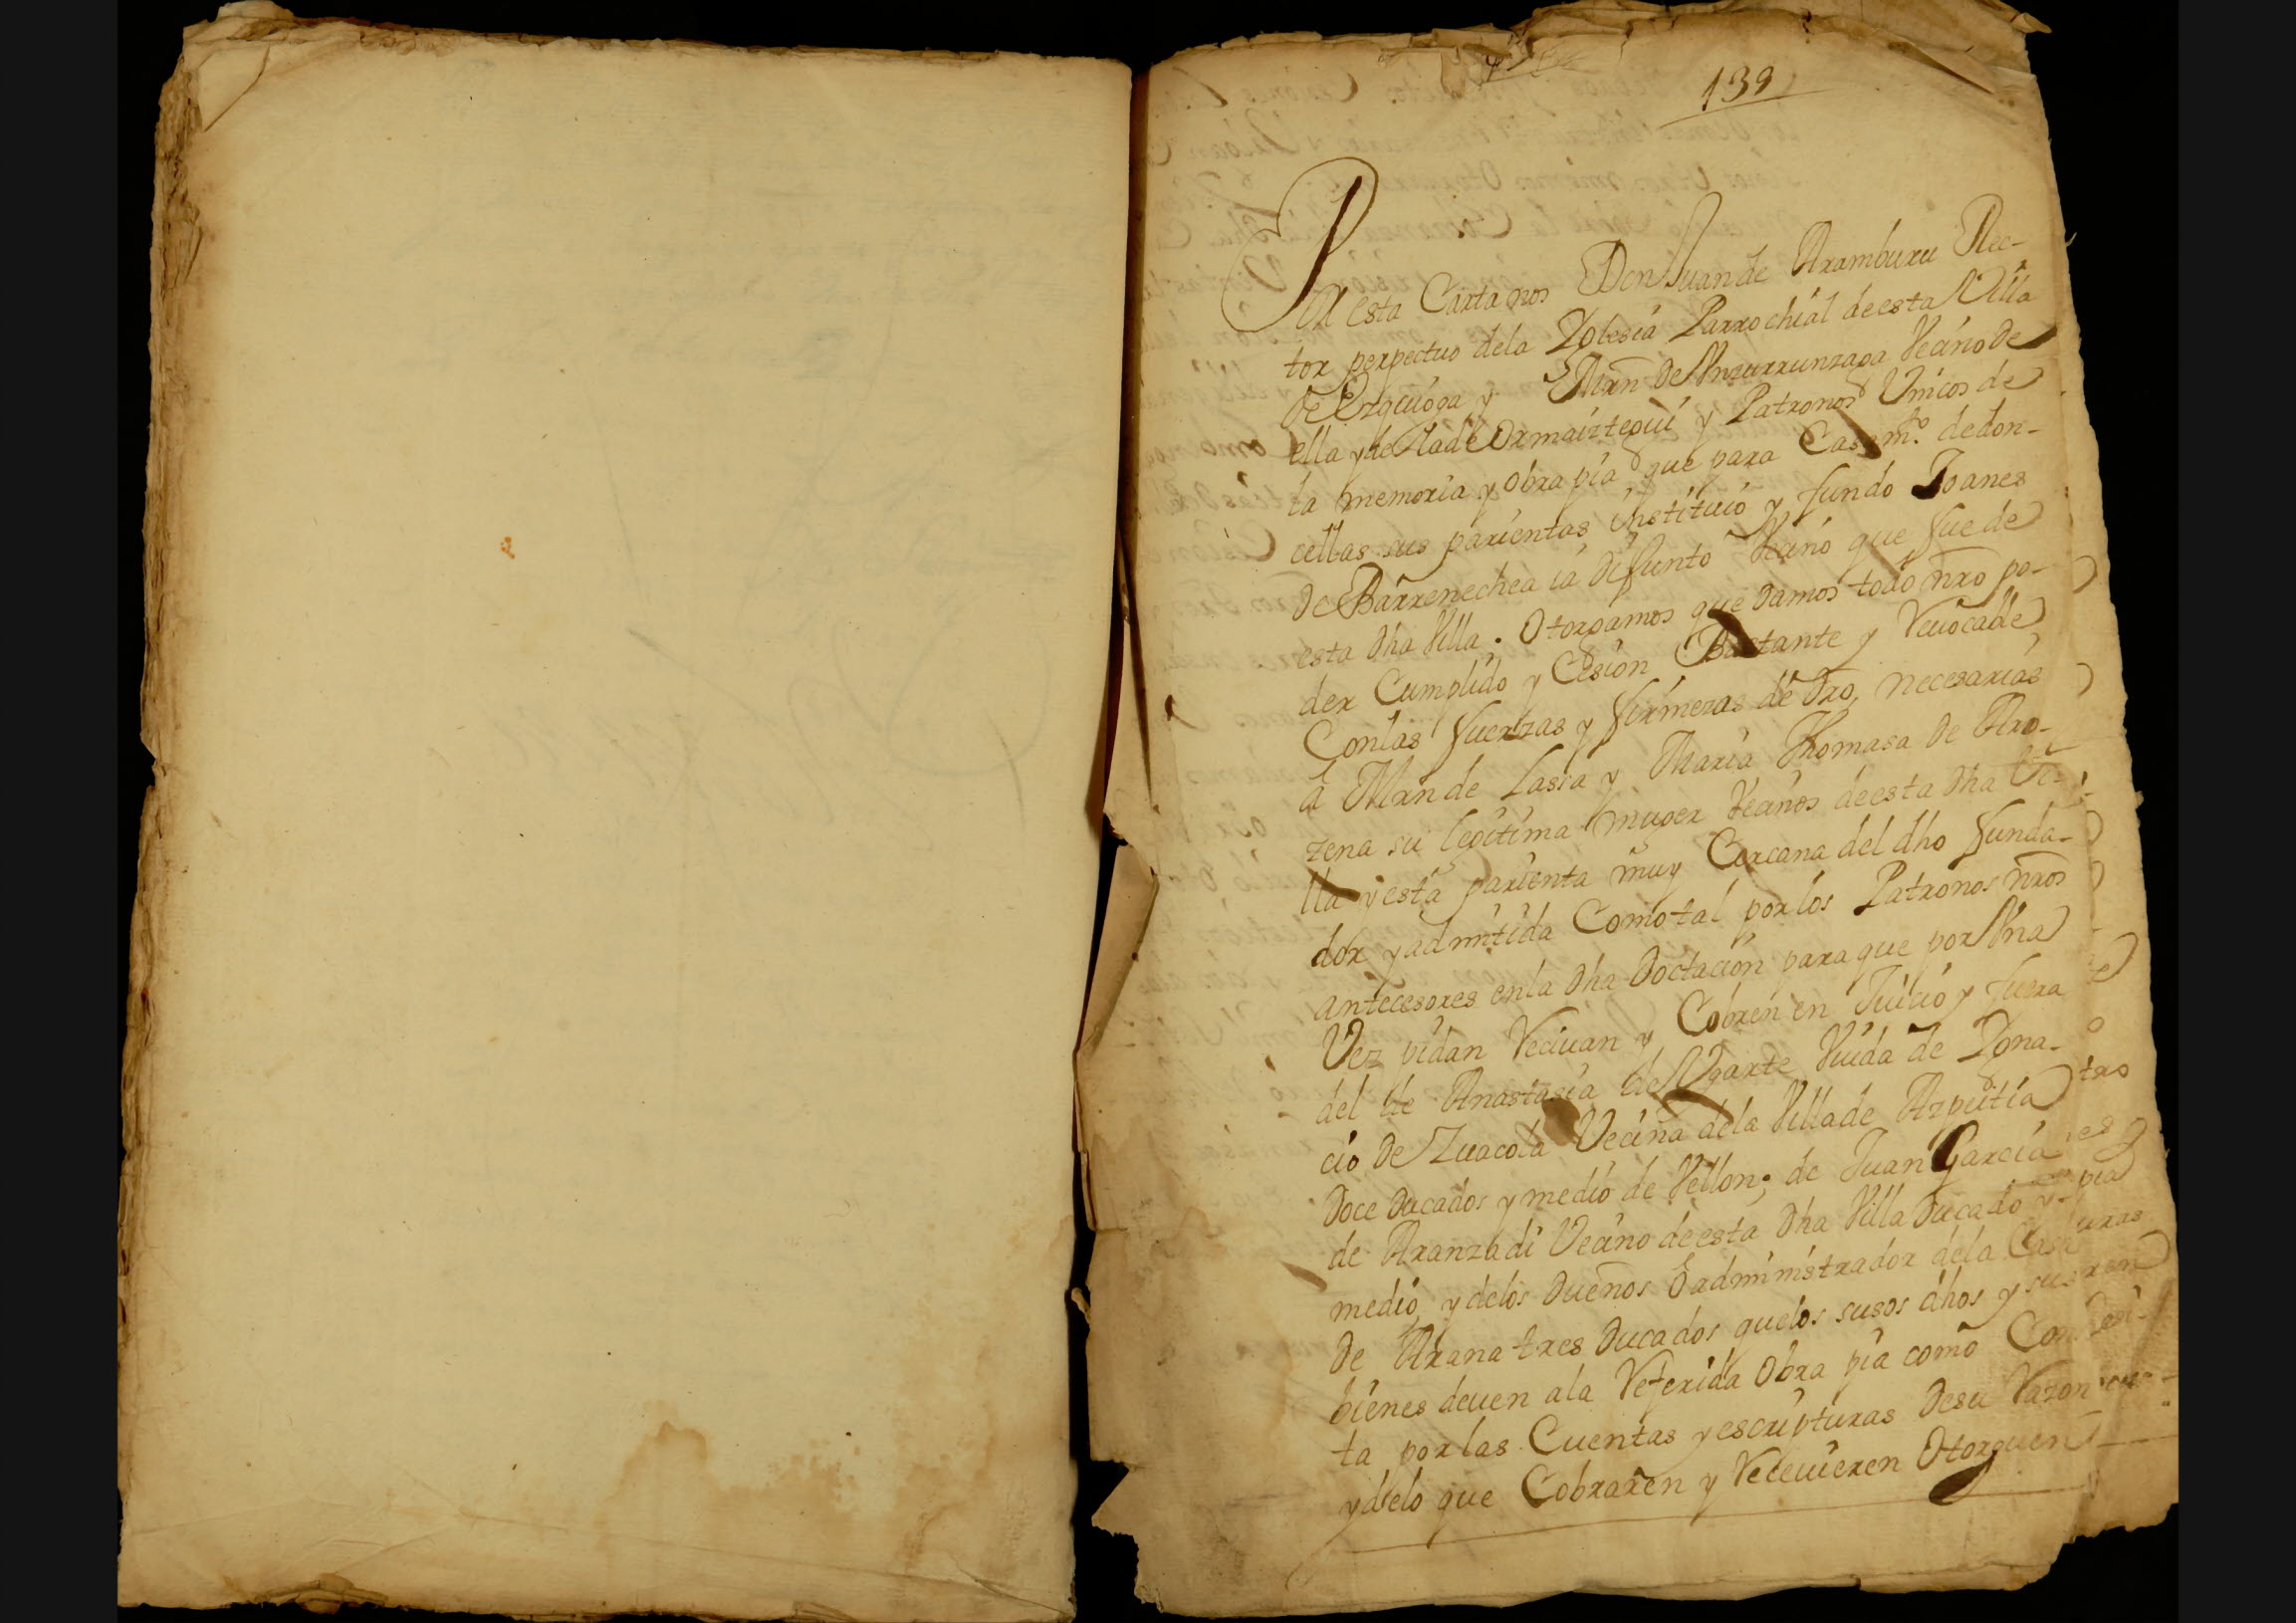 139
Por esta Carta nos Don Juan de Aramburu Rec-
tor perpectuo dela Yglesia Parrochial de esta Villa
de Ezqeuioga y Mrn de Vnzurrunzaga Vecino de
ella y de la de Ormaiztegui y Patronos Vnicos de
la memoria y obra pia que para Casam.to de don-
cellas sus parientas instituio y fundo Joanes
de Barrenechea ia difunto Vecino que fue de
esta dha Villa. Otorgamos que damos todo nro po-
der Cumplido y Cesion Bastante y Reuocable
Con las fuerzas y firmezas de dro necesarias
á Mrn de Lassa y Maria Thomasa de Aro-
zena su legitima muger Vecinos de esta dha Vi-
lla y esta parienta muy Cercana del dho funda-
dor y admitida Como tal por los Patronos nros
antecesores en la dha Doctacion para que por Vna
Vez pidan Reciuan y Cobren en Juicio y fuera
del de Anastasia de Vgarte Viuda de Ygna-
cio de Zuacola Vecina dela Villa de Azpeitia
Doce Ducados y medio de Vellon; de Juan Garcia
de Aranzadi Vecino de esta dha Villa Ducado y
medio, y delos Dueños ó administrador dela Casa
de Arana tres Ducados que los susos dhos y sus
bienes deuen ala Referida Obra pia como Cons
ta por las Cuentas y escripturas de su Razon
y delo que Cobraren y Receuieren Otorguen